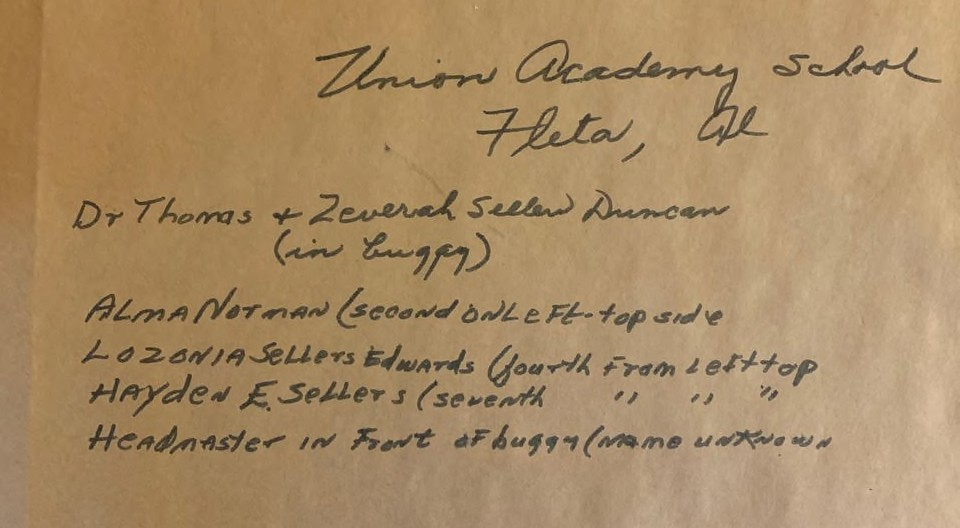 Union Academy School
Fleta, Al
Dr Thomas + Zeverah Sellers Duncan
(in buggy)
Alma Norman (second on Left-top side
Lozonia Sellers Edwards (fourth from Left top
Hayden E. Sellers (seventh " " "
Headmaster in Front of buggy (name unknown